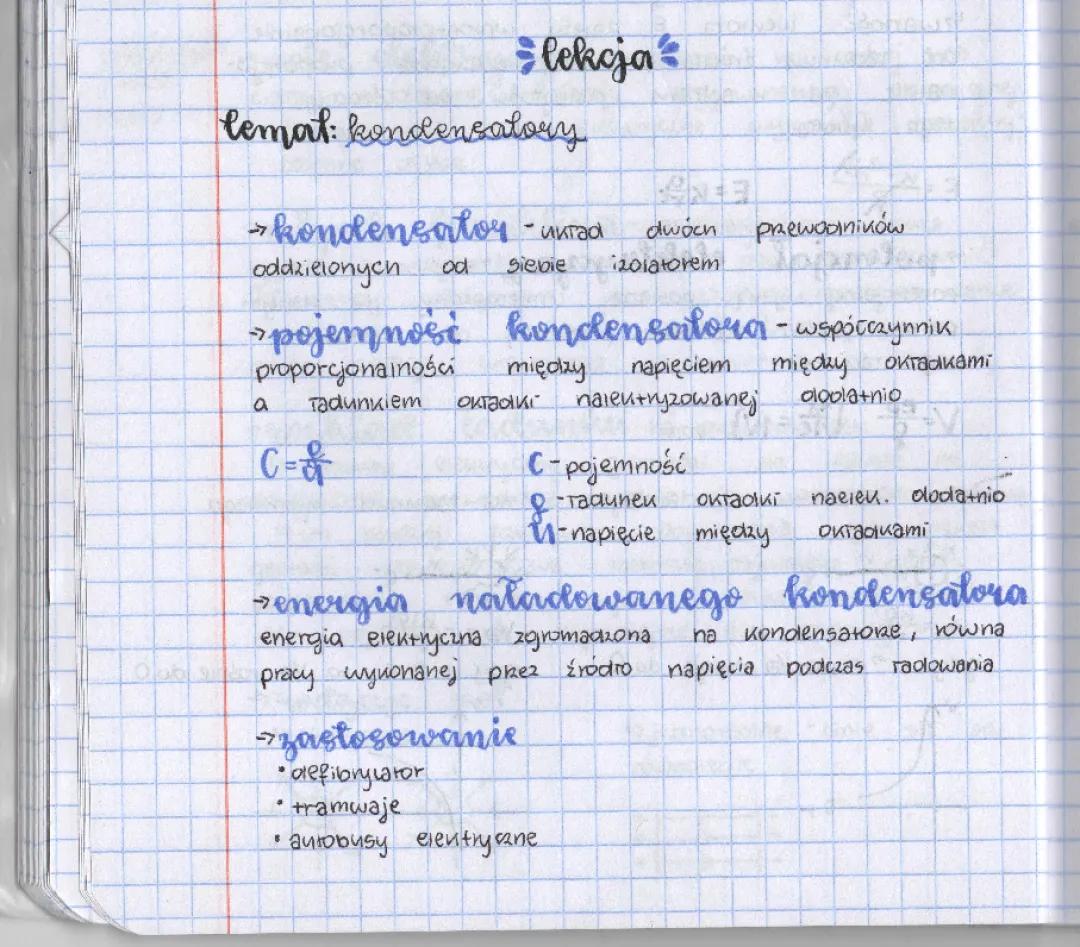 lekcja
temat: kondensatory
→ kondensator - układ dwóch przewodników
oddzielonych od siebie izolatorem
→ pojemność kondensatora - współczynnik
proporcjonalności między napięciem między okładkami
a ładunkiem okładki naelektryzowanej dodatnio
C = Q/U
C - pojemność
Q - ładunek okładki naelek. dodatnio
U - napięcie między okładkami
→ energia naładowanego kondensatora
energia elektryczna zgromadzona na kondensatorze, równa
pracy wykonanej przez źródło napięcia podczas ładowania
→ zastosowanie
• defibrylator
• tramwaje
• autobusy elektryczne